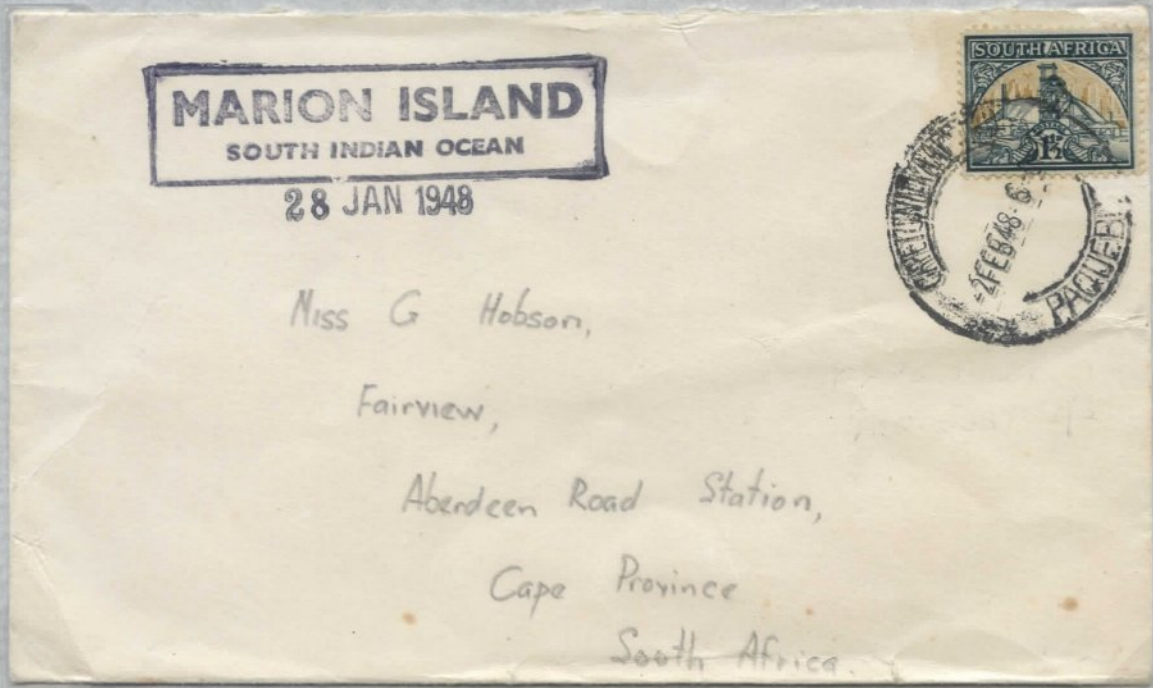 MARION ISLAND
SOUTH INDIAN OCEAN
28 JAN 1948
SOUTH AFRICA
1½
-2 FEB 48 - 6
PAQUEBOT
Miss G Hobson,
Fairview,
Aberdeen Road Station,
Cape Province
South Africa.